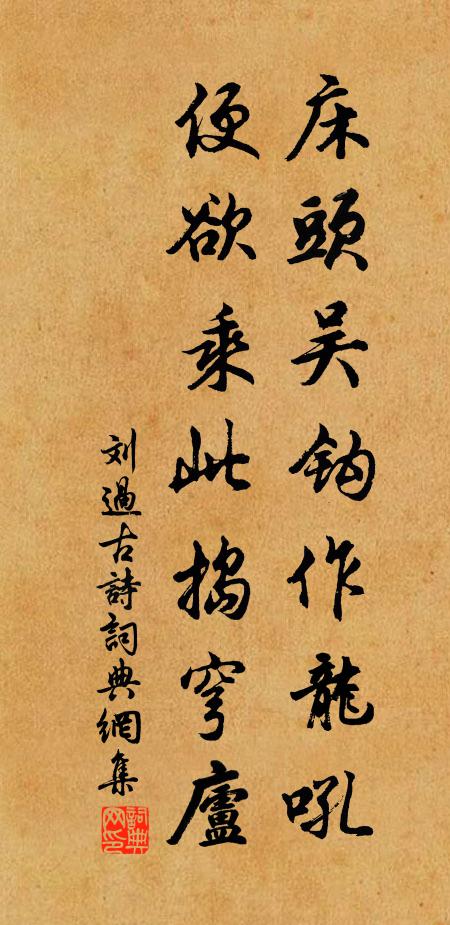 床頭吴鈎作龍吼
便欲乘此搗穹廬
刘過古詩詞典網集
詞典網印